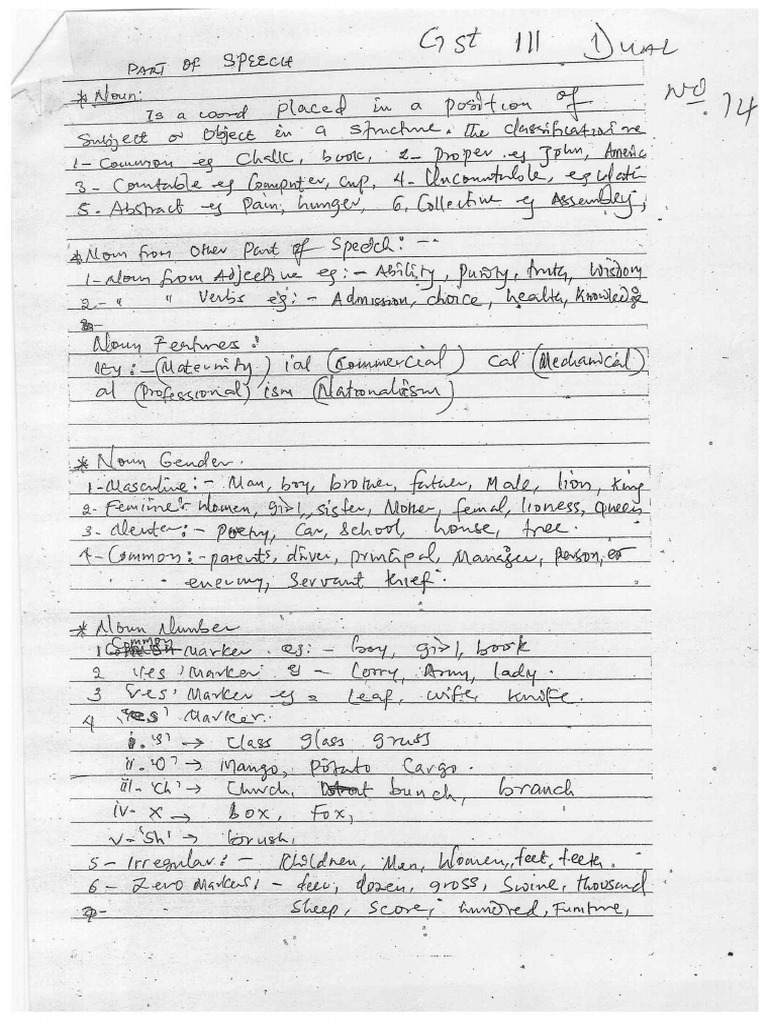 Gst III Dual
PART OF SPEECH
No. 14
* Noun:
Is a word placed in a position of
Subject or Object in a structure. The classification re
1- Common eg Chalk, book, 2- Proper eg John, Americ
3 - Countable eg Computer, cup, 4- Uncountable, eg
5. Abstract eg Pain, hunger, 6, Collective eg Assembly,
* Noun from Other Part of Speech: --
1- Noun from Adjective eg:- Ability, purity, truth, Wisdom
2- " " Verbs eg:- Admission, choice, health, Knowledge
3-
Noun Features:
ity:- (Maternity) ial (Commercial) cal (Mechanical)
al (Professional) ism (Nationalism)
* Noun Gender.
1-Masculine:- Man, boy, brother, father, Male, lion, King
2- Feminine:- Women, girl, sister, Mother, femal, lioness, queen
3- Neuter:- poetry, Car, School, house, tree.
4- Common:- parents, driver, principal, Manager, person, or
enemy, Servant thief.
* Noun Number
1 Common marker. eg:- boy, girl, book
2 'ies' Marker eg - Lorry, Army, lady.
3 'ves' Marker eg = Leaf, wife, knife.
4 'es' Marker.
i. 's' → class glass grass
ii. 'O' → Mango, potato Cargo.
iii- 'ch' → Church, bunch, branch
iv- x → box, Fox,
v- 'sh' → brush,
5 - Irregular:- Children, Men, Women, feet, teeth.
6 - Zero markers:- deer, dozen, gross, Swine, thousand
Sheep, Score, hundred, Furniture,